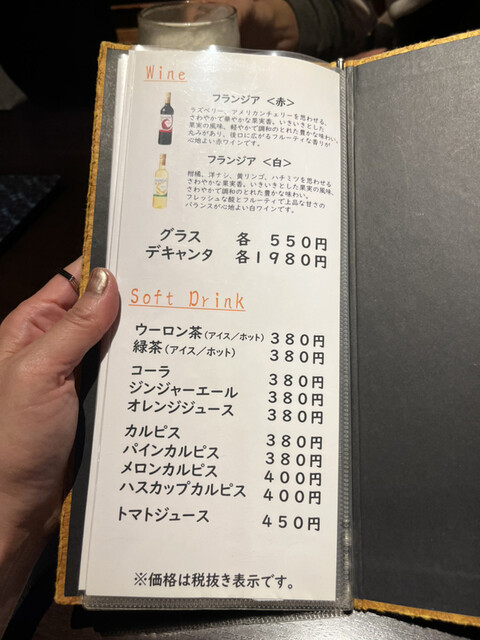 Wine
フランジア <赤>
ラズベリー、アメリカンチェリーを思わせる、
さわやかで華やかな果実香。いきいきとした
果実の風味、軽やかで調和のとれた豊かな味わい。
丸みがあり、後口に広がるフルーティな香りが
心地よい赤ワインです。
フランジア <白>
柑橘、洋ナシ、黄リンゴ、ハチミツを思わせる
さわやかな果実香。いきいきとした果実の風味、
さわやかで調和のとれた豊かな味わい。
フレッシュな酸とフルーティで上品な甘さの
バランスが心地よい白ワインです。
グラス 各 550円
デキャンタ 各1980円
Soft Drink
ウーロン茶(アイス/ホット) 380円
緑茶(アイス/ホット) 380円
コーラ 380円
ジンジャーエール 380円
オレンジジュース 380円
カルピス 380円
パインカルピス 380円
メロンカルピス 400円
ハスカップカルピス 400円
トマトジュース 450円
※価格は税抜き表示です。